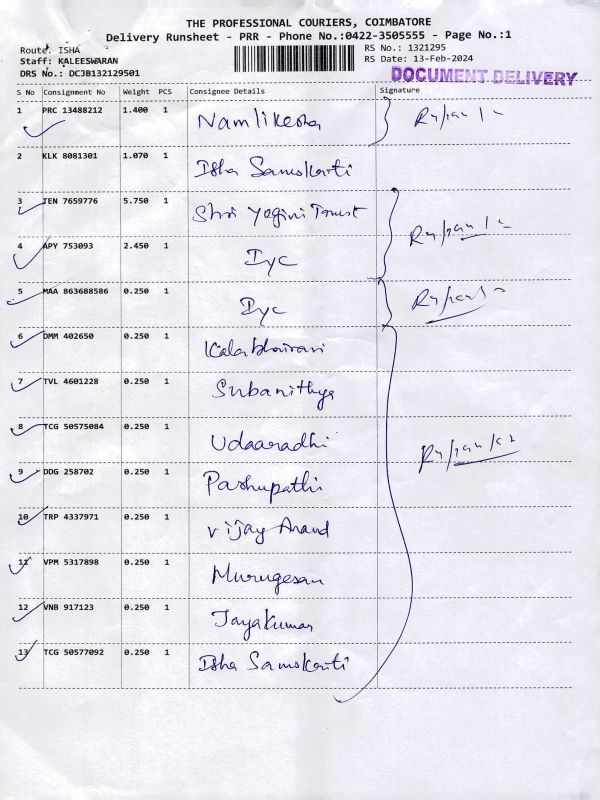 THE PROFESSIONAL COURIERS, COIMBATORE
Delivery Runsheet - PRR - Phone No.:0422-3505555 - Page No.:1
Route: ISHA
RS No.: 1321295
Staff: KALEESWARAN
RS Date: 13-Feb-2024
DRS No.: DCJB132129501
DOCUMENT DELIVERY
S No Consignment No Weight PCS Consignee Details Signature
1 PRC 13488212 1.400 1
2 KLK 8081301 1.070 1 Isha Samskriti
3 TEN 7659776 5.750 1 Shri Yogini Trust
4 APY 753093 2.450 1 Iyc
5 MAA 863688586 0.250 1 Iyc
6 DMM 402650 0.250 1 Kalabhairavi
7 TVL 4601228 0.250 1 Subanithya
8 TCG 50575084 0.250 1 Udaaradhi
9 DDG 258702 0.250 1 Pashupathi
10 TRP 4337971 0.250 1 Vijay Anand
11 VPM 5317898 0.250 1 Murugesan
12 VNB 917123 0.250 1 Jayakumar
13 TCG 50577092 0.250 1 Isha Samskriti